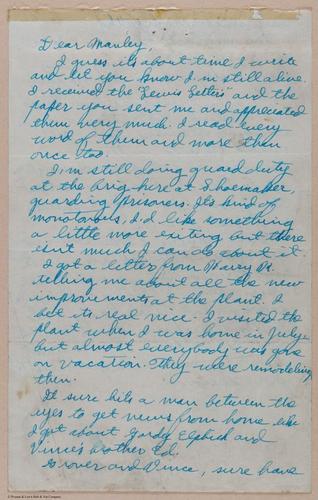 Dear Manley,
I guess its about time I write
and let you know I'm still alive.
I received the "Lewis Letters" and the
paper you sent me and appreciated
them very much. I read every
word of them and more then
once too.
I'm still doing guard duty
at the brig here at Shoemaker,
guarding prisoners. Its kind of
monotonous, I'd like something
a little more exiting but there
isn't much I can do about it.
I got a letter from Harry M.
telling me about all the new
improvements at the plant. I
bet its real nice. I visited the
plant when I was home in July
but almost everybody was gone
on vacation. They were remodeling
then.
It sure hits a man between the
eyes to get news from home like
I got about Gordy and
Vince's brother Ed.
Grover and Vince, sure have